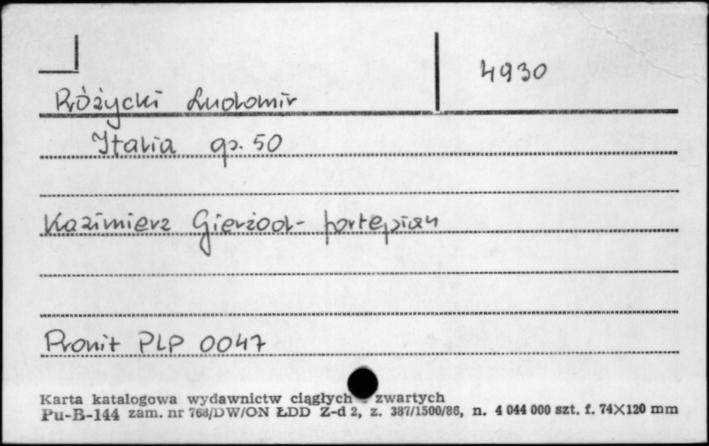 4930
Różycki Ludomir
Italia op. 50
Kazimierz Gierżod - fortepian
Pronit PLP 0047
Karta katalogowa wydawnictw ciągłych - zwartych
Pu-B-144 zam. nr 768/DW/ON ŁDD Z-d 2, z. 387/1500/86, n. 4 044 000 szt. f. 74X120 mm